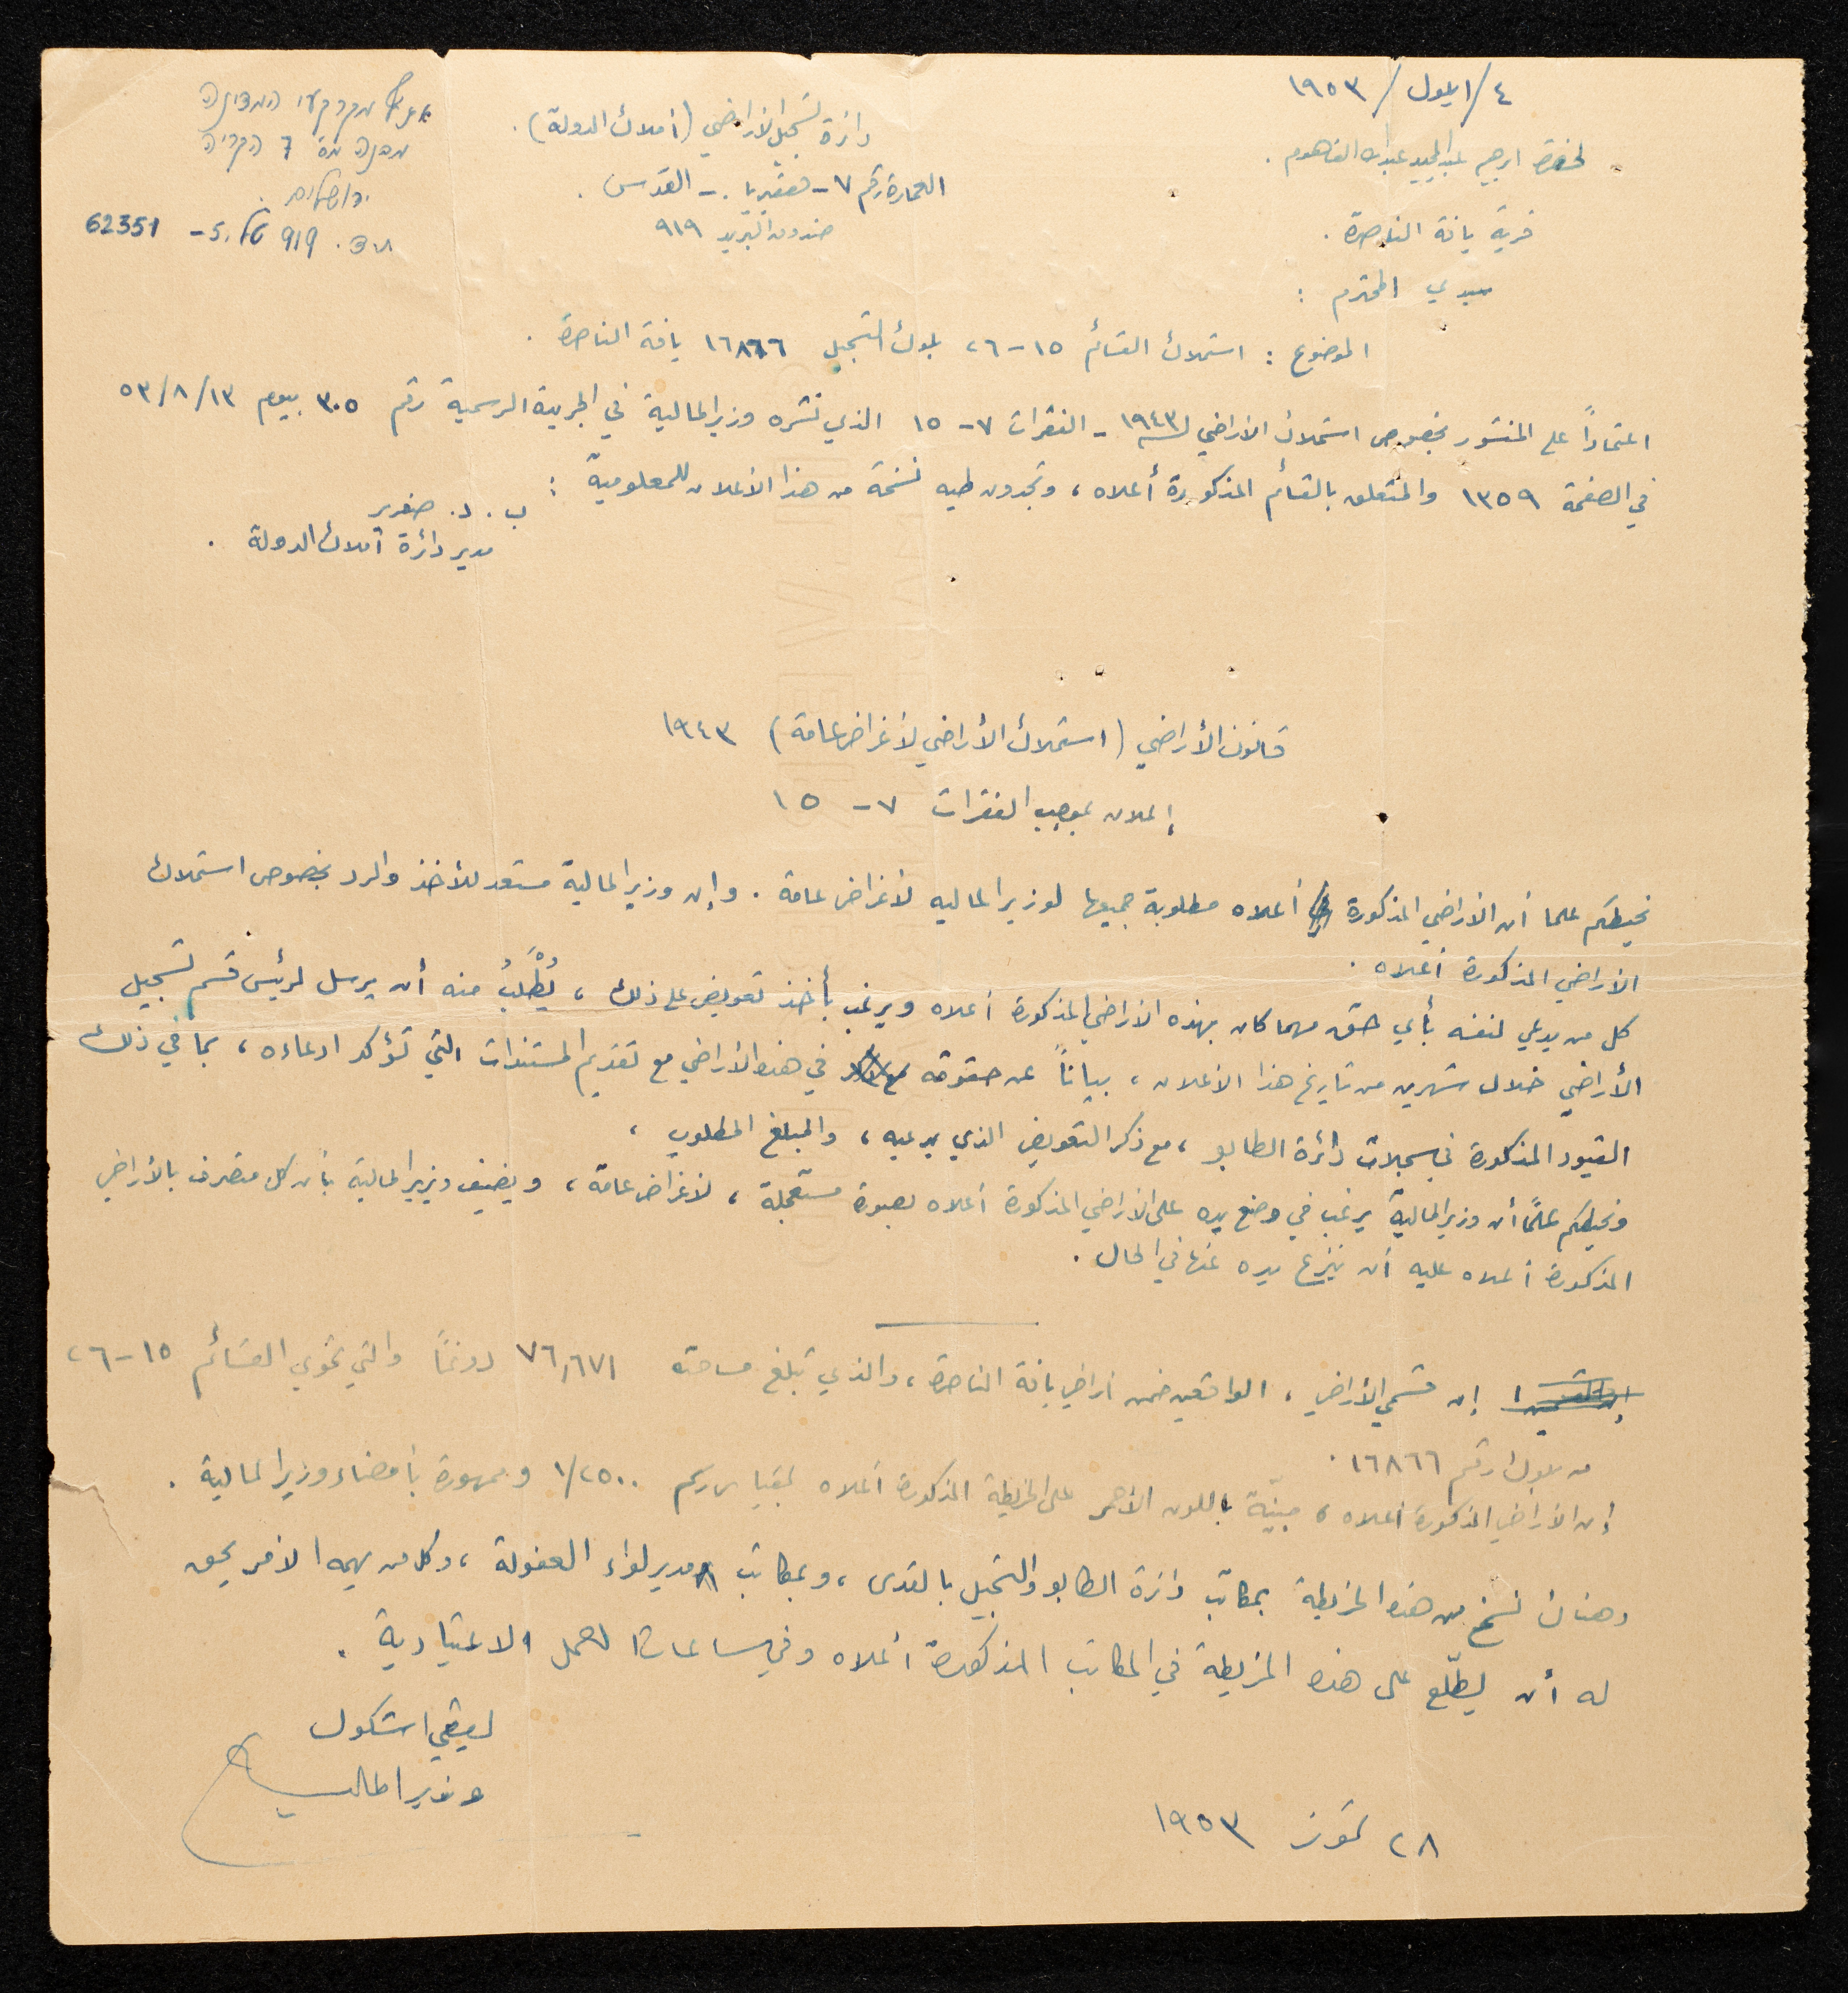 ٤/ايلول/١٩٥٣
لحضرة ابرهيم عبد المجيد عبدالله الفاهوم .
قرية يافة الناصرة .
سيدي المحترم :
دائرة تسجيل الأراضي (أملاك الدولة) .
العمارة رقم ٧ – هقريا . – القدس .
صندوق البريد ٩١٩
אגף מקרקעי המדינה
מבנה מס' 7 הקריה
ירושלים
ת.ד. 919 טל. 5 - 62351
الموضوع : استملاك القسائم ١٥-٢٦ بلوك التسجيل ١٦٨٦٦ يافة الناصرة .
اعتماداً على المنشور بخصوص استملاك الأراضي لسنة ١٩٤٣ – الفقرات ٧-١٥ الذي نشره وزير المالية في الجريدة الرسمية رقم ٣٠٥ بيوم ٥٣/٨/١٣
في الصفحة ١٣٥٩ والمتعلق بالقسائم المذكورة أعلاه ، وتجدون طيه نسخة من هذا الأعلان للمعلومية :
ب . د . صفرير
مدير دائرة أملاك الدولة .
قانون الأراضي (استملاك الأراضي لأغراض عامة) ١٩٤٣
إعلان بموجب الفقرات ٧-١٥
نحيطكم علما أن الأراضي المذكورة أعلاه مطلوبة جميعها لوزير الماليه لأغراض عامة . وإن وزير المالية مستعد للأخذ والرد بخصوص استملاك
الأراضي المذكورة أعلاه .
كل من يدعي لنفسه بأي حق مهما كان بهذه الأراضي المذكورة أعلاه ويرغب بأخذ تعويض على ذلك ، يُطْلَبُ منه أن يرسل لرئيس قسم تسجيل
الأراضي خلال شهرين من تاريخ هذا الأعلان ، بياناً عن حقوقه في هذه الأراضي مع تقديم المستندات التي تؤكد ادعاءه ، بما في ذلك
القيود المذكورة في سجلات دائرة الطابو ، مع ذكر التعويض الذي يدعيه ، والمبلغ المطلوب ،
ونحيطكم علمًا أن وزير المالية يرغب في وضع يده على الأراضي المذكورة أعلاه بصورة مستعجلة ، لأغراض عامة ، ويضيف وزير المالية بأن كل متصرف بالأراضي
المذكورة أعلاه عليه أن ينزع يده عنها في الحال .
إن قسمي الأراضي ، الواقعين ضمن أراضي يافة الناصرة ، والذي تبلغ مساحته ٧٦,٦٧١ دونمًا والتي تحوي القسائم ١٥-٢٦
من بلوك رقم ١٦٨٦٦ .
إن الأراضي المذكورة أعلاه ، مبيّنة باللون الأحمر على الخريطة المذكورة أعلاه بمقياس رسم ١/٢٥٠٠ وممهورة بأمضاء وزير المالية .
وهناك نسخ من هذه الخريطة بمكاتب دائرة الطابو والتسجيل بالقدس ، وبمكاتب مدير لواء العفولة ، وكل من يهمه الأمر يحق
له أن يطّلع على هذه الخريطة في المكاتب المذكورة أعلاه وفي ساعات العمل الاعتيادية .
ليفي اشكول
وزير المالية
٢٨ تموز ١٩٥٣